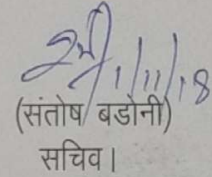 1/11/18
(संतोष बडोनी)
सचिव।